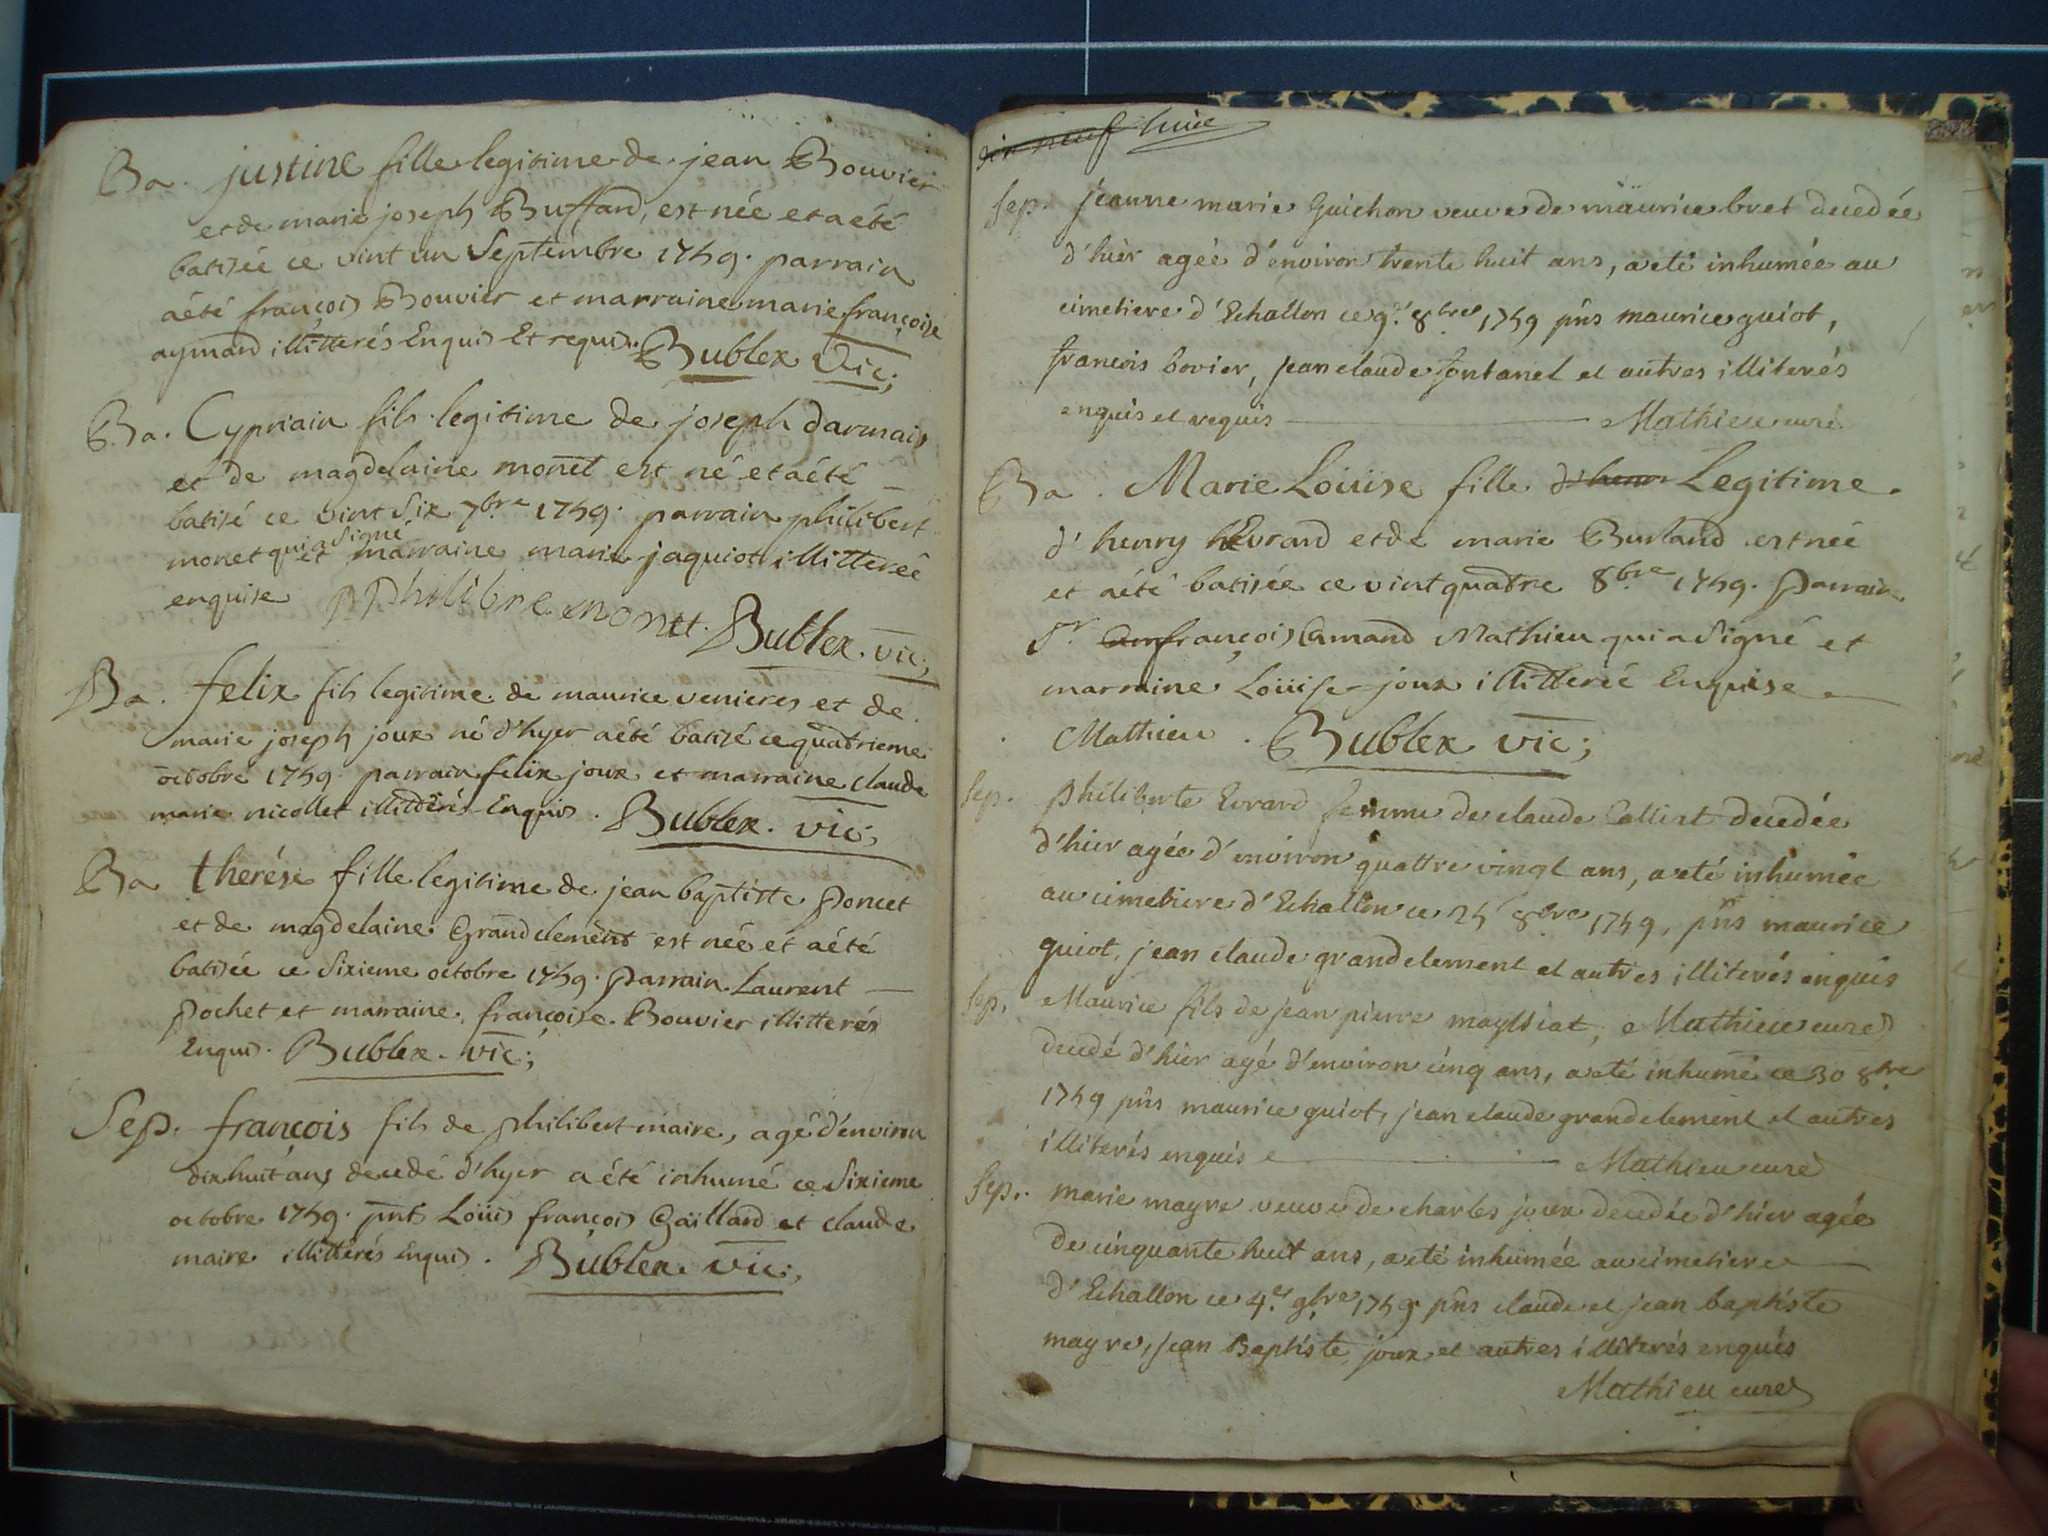 Ba. justine fille legitime de jean Bouvier
et de marie joseph Buffard, est née et a été
batisée ce vint un Septembre 1759. parrain
a été françois Bouvier et marraine marie françoise
aymard illitterés Enquis Et requis. Bublex Vic;
Ba. Cypriain fils legitime de joseph darmais
et de magdelaine monet est né et a été
batisé ce vint Six 7bre 1759. parrain philibert
monet qui a signé et marraine marie jaquiot illitterée
enquise philibre monet. Bublex. vic;
Ba. felix fils legitime de maurice venieres et de
marie joseph joux né d'hyer a été batisé ce quatrieme
octobre 1759. parrain felix joux et marraine claude
marie nicollet illitterés Enquis. Bublex. vic;
Ba therése fille legitime de jean baptiste poncet
et de magdelaine Grandclement est née et a été
batisée ce Sixieme octobre 1759. parrain Laurent
pochet et marraine françoise Bouvier illitterés
Enquis. Bublex. vic;
Sep. françois fils de philibert maire, agé d'environ
dix huit ans decedé d'hyer a été inhumé ce Sixieme
octobre 1759. pnt Loüis françois Gaillard et claude
maire illitterés Enquis. Bublex. vic;
dix neuf huie
Sep. jeanne marie Guichon veuve de maurice bret decedée
d'hier agée d'environ trente huit ans, a eté inhumée au
cimetiere d'Echallon ce 9e 8bre 1759 pñs maurice guiot,
francois bovier, jean claude fontanel et autres illiterés
enquis et requis Mathieu curé
Ba. Marie Loüise fille d'henri Legitime
d'henry hEvrard et de marie Burland est née
et a été batisée ce vint quatre 8bre 1759. Parrain
Sr françois Amand Mathieu qui a Signé et
marraine Loüise joux illitterée Enquise
Mathieu. Bublex vic;
Sep. philiberte Evrard femme de claude Calliat decedée
d'hier agée d'environ quattre vingt ans, a eté inhumée
au cimetiere d'Echallon ce 25 8bre 1759, pñs maurice
guiot, jean claude grandclement et autres illiterés enquis
Mathieu curé
Sep. Maurice fils de jean pierre mayssiat,
decedé d'hier agé d'environ cinq ans, a eté inhumé ce 30 8bre
1759 pñs maurice guiot, jean claude grandclement et autres
illiterés enquis Mathieu curé
Sep. marie mayre veuve de charles joux decedée d'hier agée
de cinquante huit ans, a eté inhumée au cimetiere
d'Echallon ce 4e 9bre 1759 pñs claude et jean baptiste
mayre, jean Baptiste joux et autres illiterés enquis
Mathieu curé